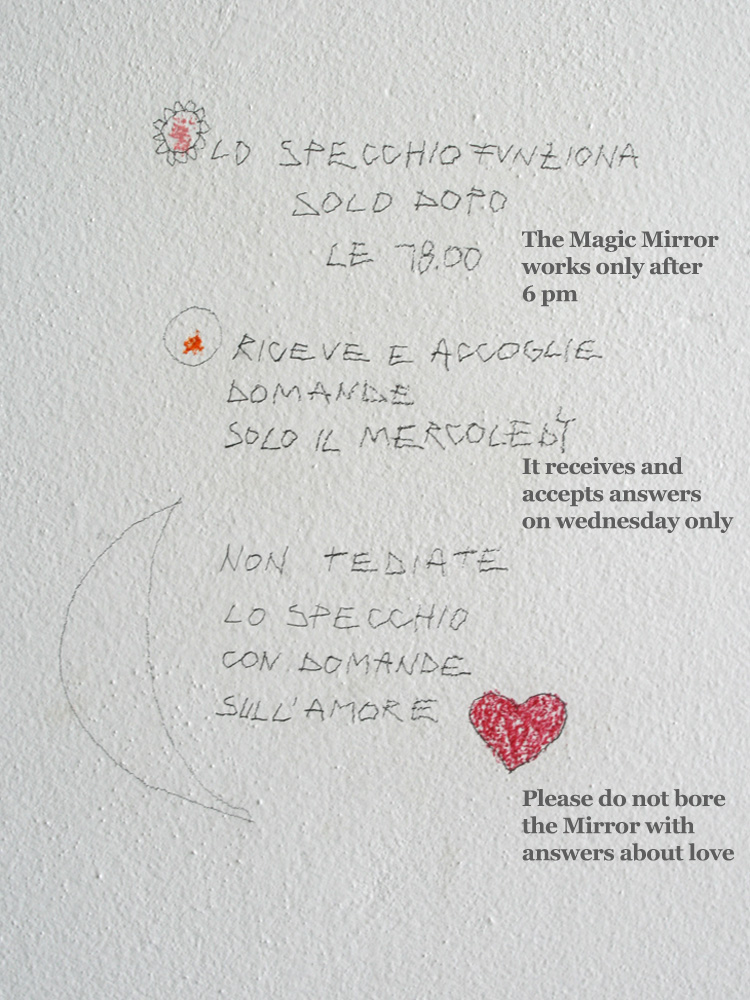 LO SPECCHIO FUNZIONA
SOLO DOPO
LE 18.00
The Magic Mirror
works only after
6 pm
RICEVE E ACCOGLIE
DOMANDE
SOLO IL MERCOLEDÌ
It receives and
accepts answers
on wednesday only
NON TEDIATE
LO SPECCHIO
CON DOMANDE
SULL'AMORE
Please do not bore
the Mirror with
answers about love